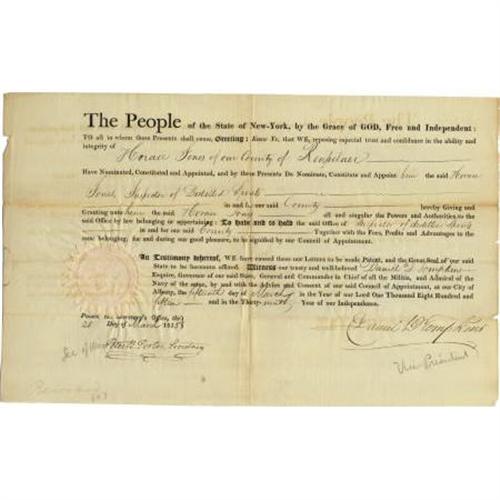 The People of the State of New-York, by the Grace of GOD, Free and Independent:
TO all to whom these Presents shall come, Greeting: Know Ye, That WE, reposing especial trust and confidence in the ability and
integrity of Horace Jones of our County of Rensselaer
Have Nominated, Constituted and Appointed, and by these Presents Do Nominate, Constitute and Appoint him the said Horace
Jones, Inspector of Distilled Spirits
in and for our said County hereby Giving and
Granting unto him the said Horace Jones all and singular the Powers and Authorities to the
said Office by law belonging or appertaining: To have and to hold the said Office of Inspector of distilled Spirits
in and for our County Together with the Fees, Profits and Advantages to the
same belonging, for and during our good pleasure, to be signified by our Council of Appointment.
In Testimony whereof, WE have caused these our Letters to be made Patent, and the Great Seal of our said
State to be hereunto affixed: Witness our trusty and well-beloved Daniel D Tompkins
Esquire, Governor of our said State, General and Commander in Chief of all the Militia, and Admiral of the
Navy of the same, by and with the Advice and Consent of our said Council of Appointment, at our City of
Albany, the fifteenth day of March in the Year of our Lord One Thousand Eight Hundred and
fifteen and in the Thirty-ninth Year of our Independence.
Passed the Secretary's Office, the
28 Day of March 1815
Secretary
Daniel D Tompkins
Vice President